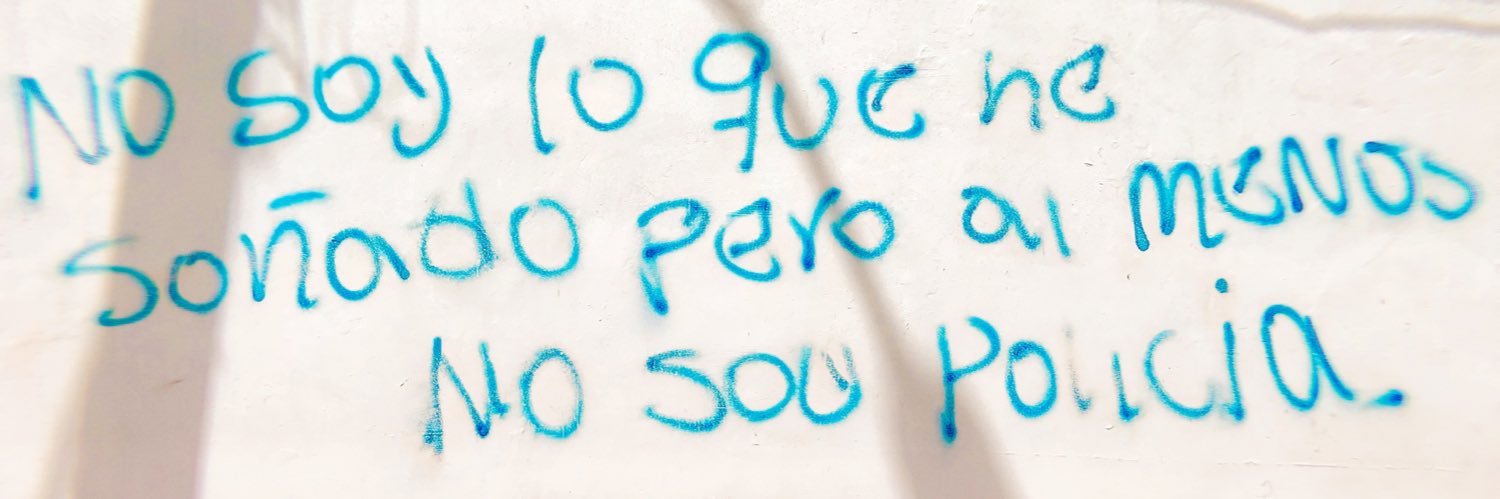 NO soy lo que he
soñado pero al menos
No soy policia.